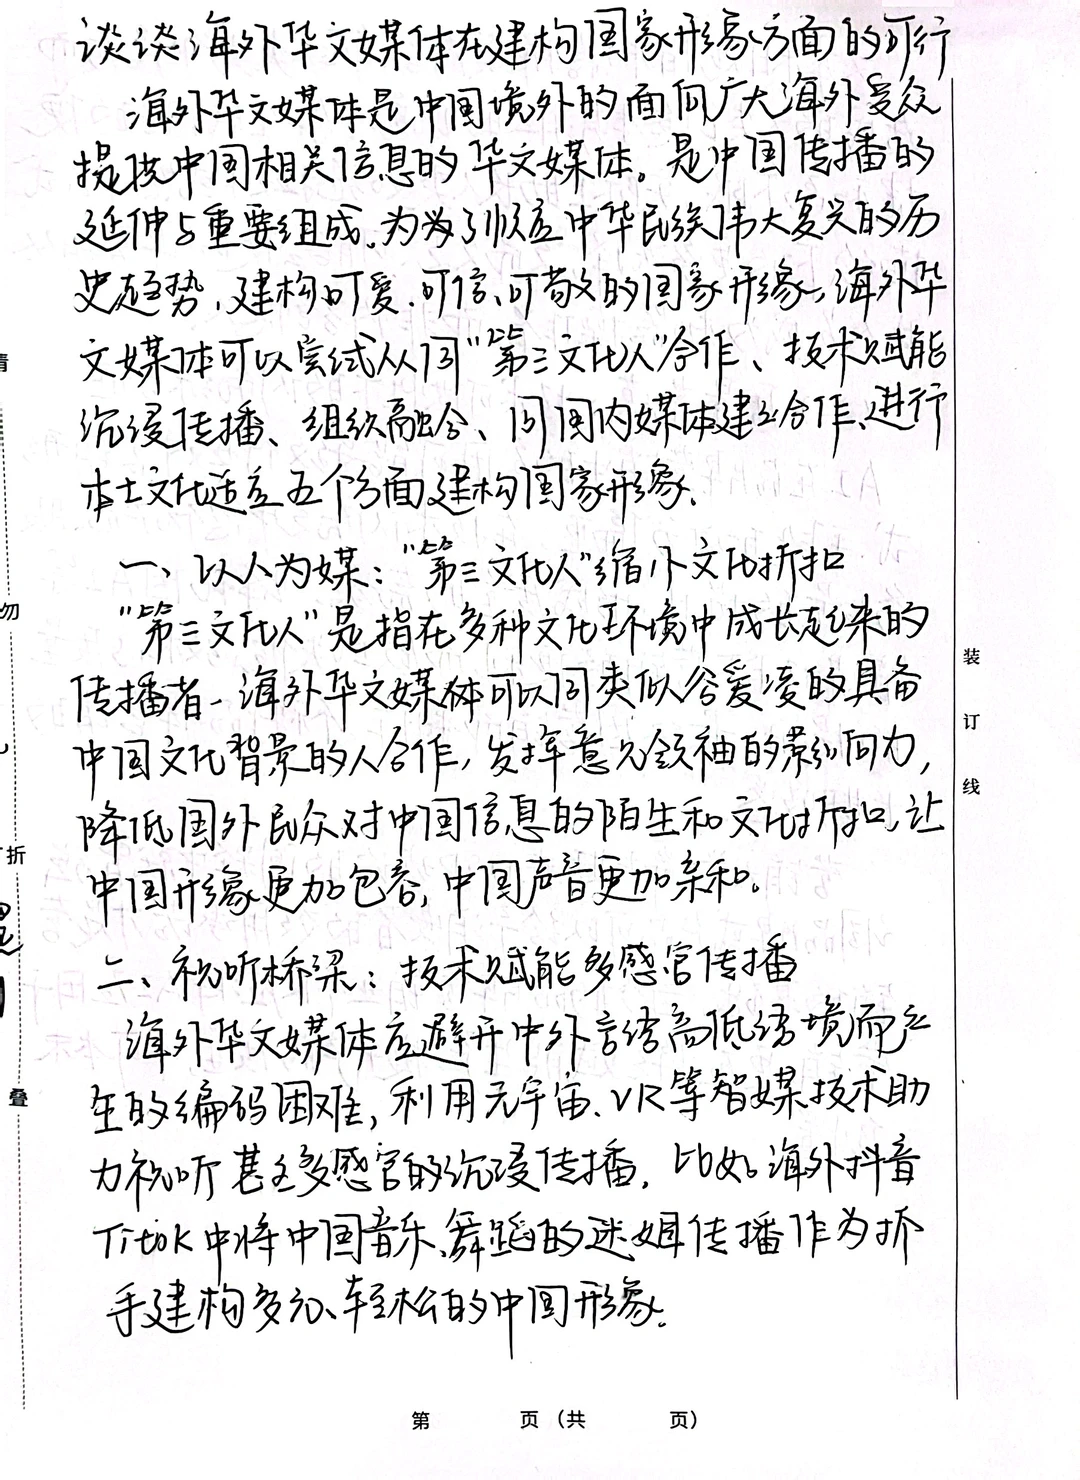 谈谈海外华文媒体在建构国家形象方面的可行
海外华文媒体是中国境外的面向广大海外受众
提供中国相关信息的华文媒体。是中国传播的
延伸与重要组成,为为了顺应中华民族伟大复兴的历
史趋势,建构可爱、可信、可敬的国家形象,海外华
文媒体可以尝试从同“第三文化人”合作、技术赋能
沉浸传播、组织融合、同国内媒体建立合作、进行
本土文化适应五个方面建构国家形象。
一、以人为媒:“第三文化人”缩小文化折扣
“第三文化人”是指在多种文化环境中成长起来的
传播者,海外华文媒体可以同类似谷爱凌的具备
中国文化背景的人合作,发挥意见领袖的影响力,
降低国外民众对中国信息的陌生和文化折扣,让
中国形象更加包容,中国声音更加亲和。
二、视听桥梁:技术赋能多感官传播
海外华文媒体应避开中外言语高低语境而产
生的编码困难,利用元宇宙、VR等智媒技术助
力视听甚至多感官的沉浸传播,比如海外抖音
Titok中将中国音乐、舞蹈的迷姆传播作为抓
手建构多元、轻松的中国形象。
第 页(共 页)
装
订
线
勿
折
叠